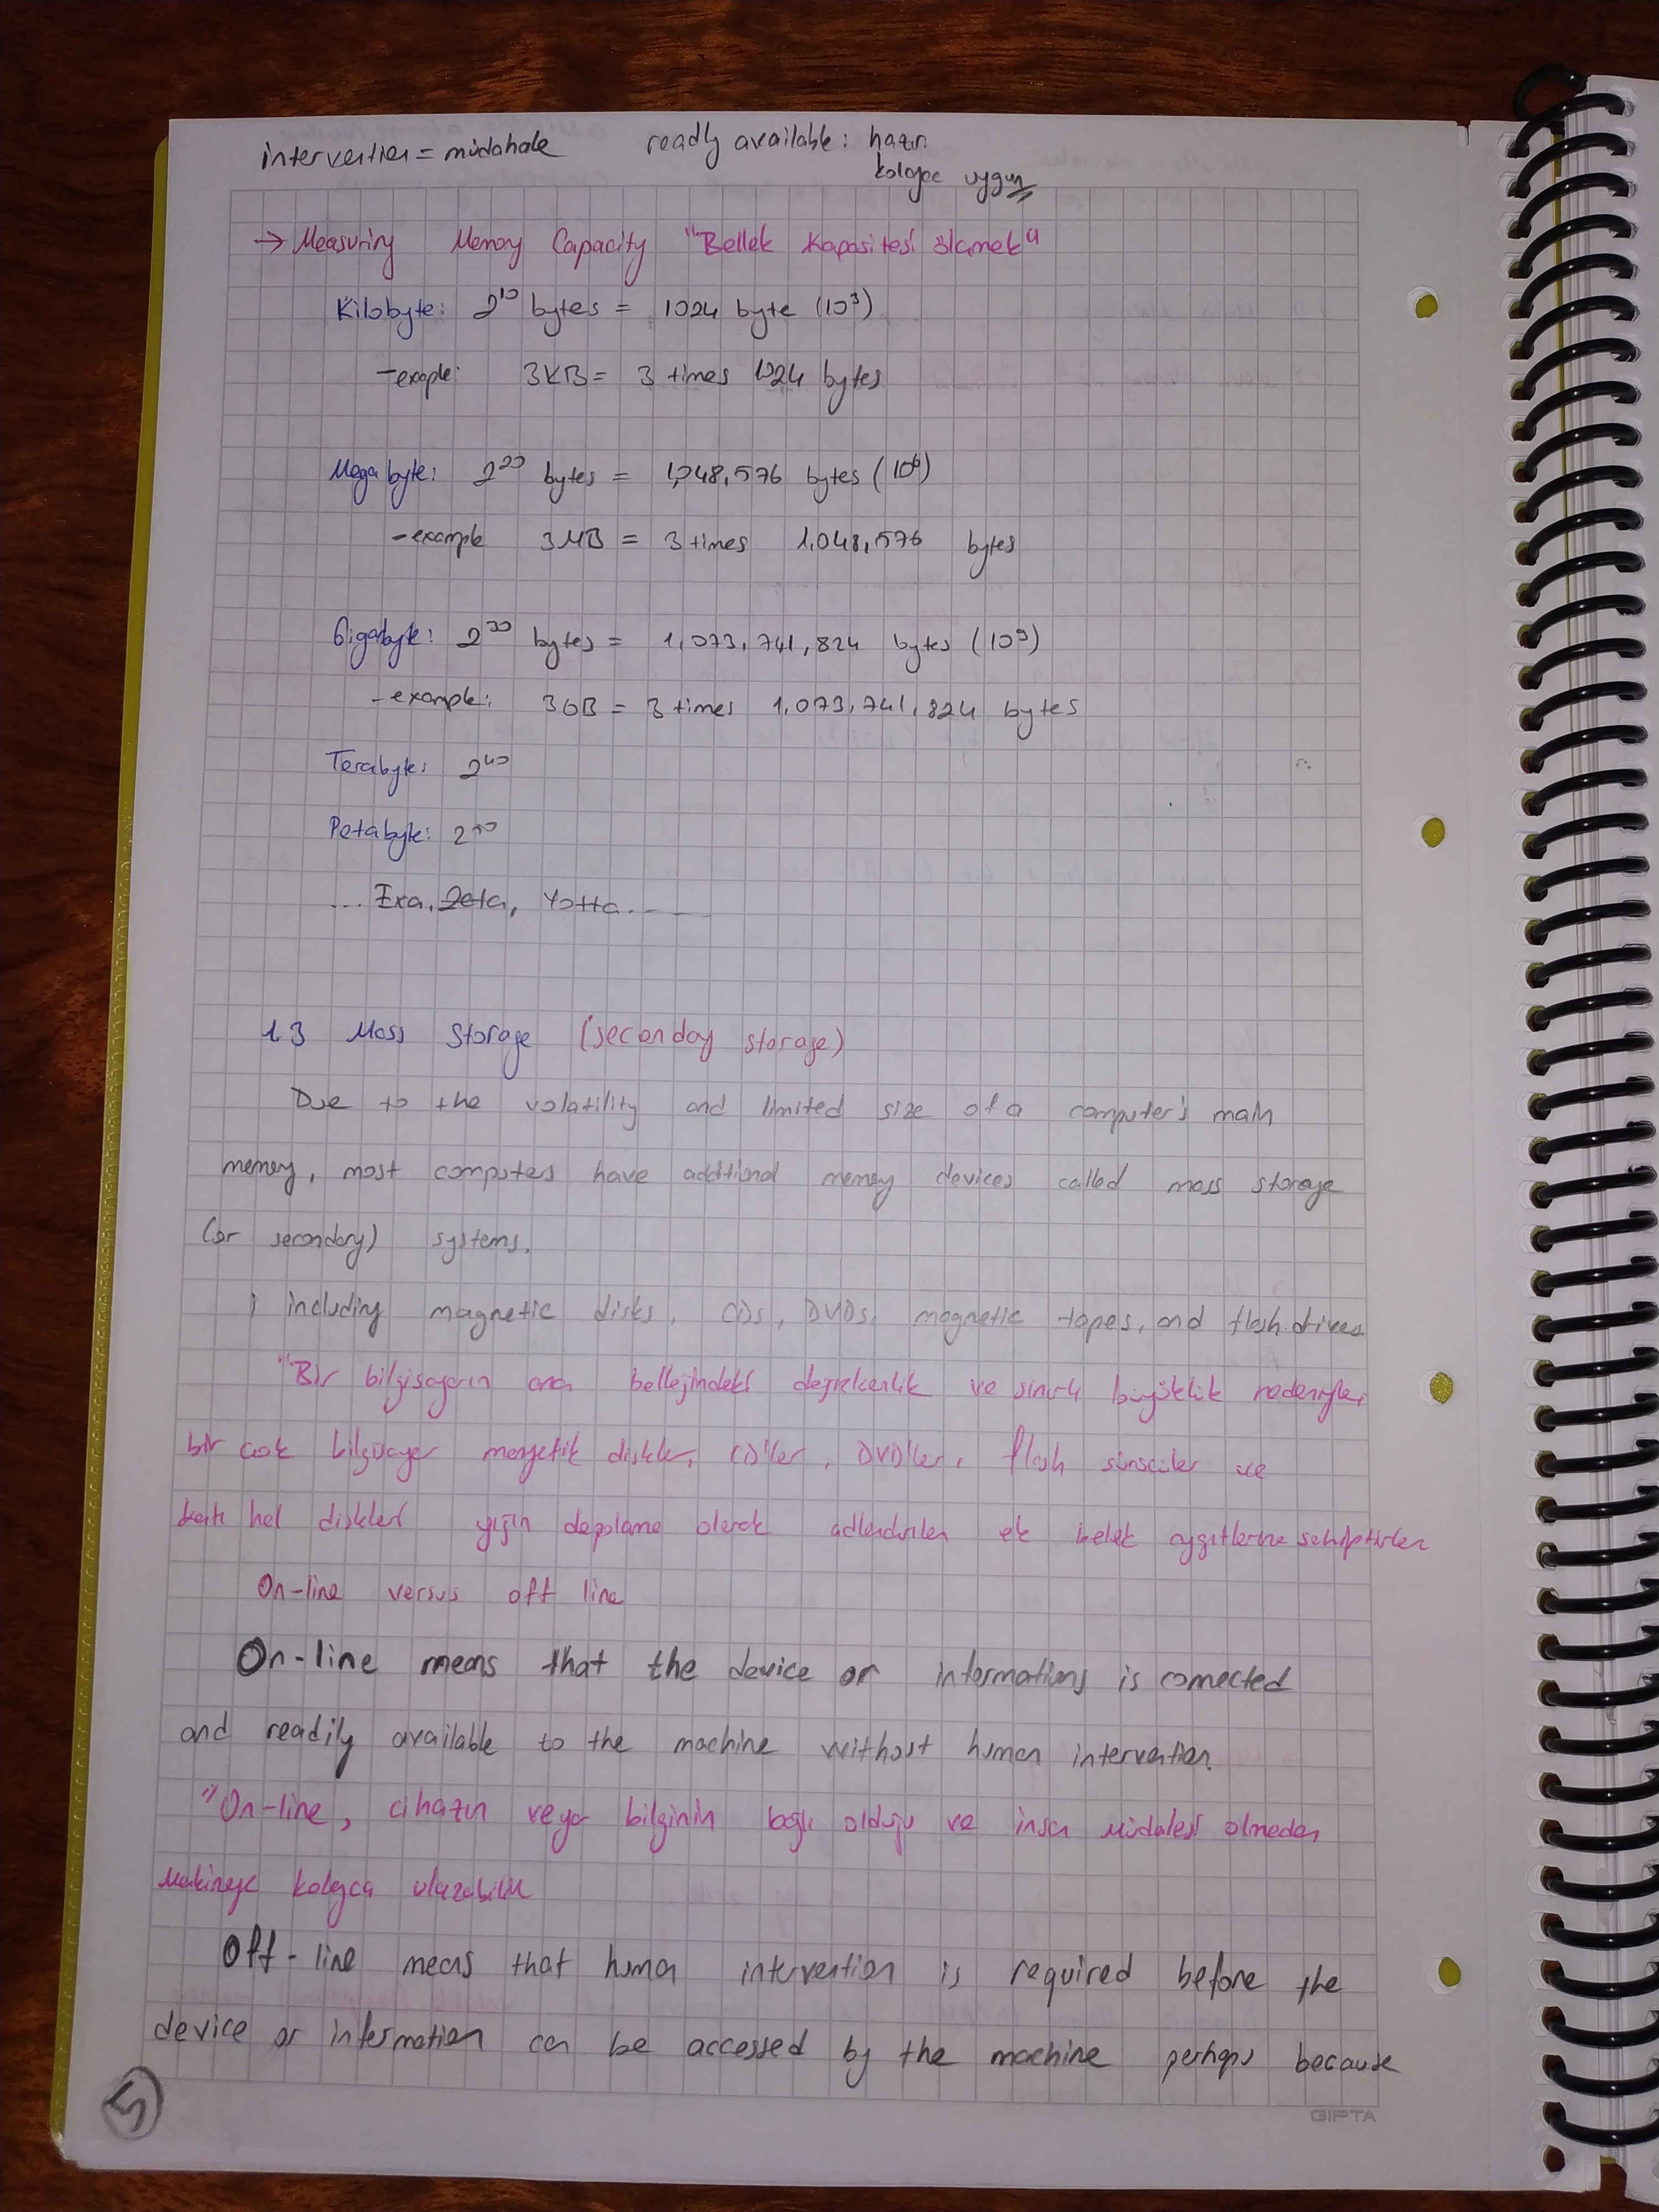 intervention = müdahale readly available : hazır
kolayca uygun
→ Measuring Memory Capacity "Bellek Kapasitesi ölçmek"
Kilobyte: 2¹⁰ bytes = 1024 byte (10³)
- example: 3KB = 3 times 1024 bytes
Megabyte: 2²⁰ bytes = 1,048,576 bytes (10⁶)
- example 3MB = 3 times 1,048,576 bytes
Gigabyte: 2³⁰ bytes = 1,073,741,824 bytes (10⁹)
- example: 3GB = 3 times 1,073,741,824 bytes
Terabyte: 2⁴⁰
Petabyte: 2⁵⁰
... Exa, Zetta, Yotta...
1.3 Mass Storage (seconday storage)
Due to the volatility and limited size of a computer's main
memory, most computes have additional memory devices called mass storage
(or secondary) systems.
, including magnetic disks, CDs, DVDs, magnetic tapes, and flash drives
"Bir bilgisayarın ana belleğindeki değişkenlik ve sınırlı büyüklük nedeniyle,
bir çok bilgisayar manyetik diskler, CD'ler, DVD'ler, flash sürücüler ve
katı hal diskler yığın depolama olarak adlandırılan ek bellek aygıtlarına sahiptirler
On-line versus off line
On-line means that the device or information is connected
and readily available to the machine without human intervention
"On-line, cihazın veya bilginin bağlı olduğu ve insan müdahalesi olmadan
Makineye kolayca ulaşabilir
Off-line means that human intervention is required before the
device or information can be accessed by the machine perhaps because
5
GIPTA